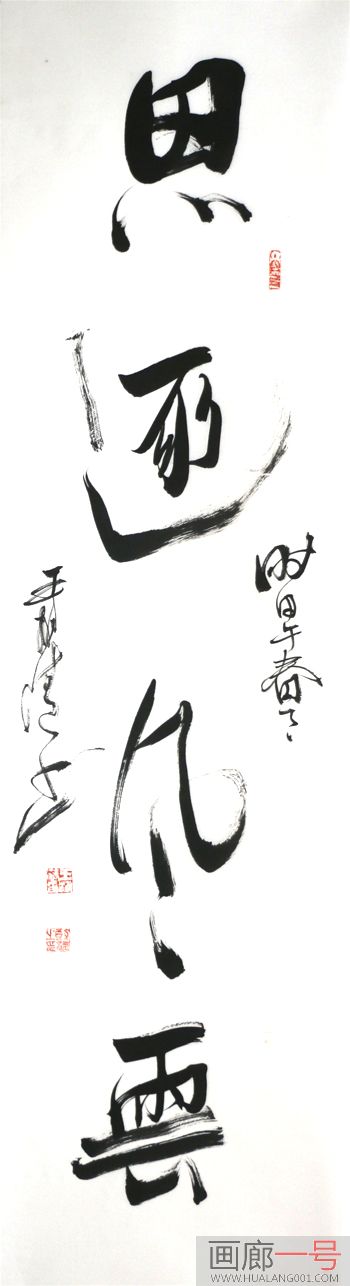 思逐風雲
时甲午春
画廊一号
WWW.HUALANG001.COM